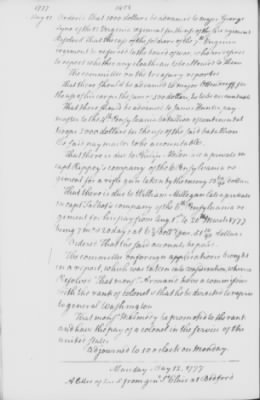 1777
May 10
Ordered That 1000 dollars be advanced to major George
Lyne of the Virginia regiment for the use of the said regiment
Resolved That the of the of the Virginia
regiment be referred to the board of war who are to
report whether any should be allowed to them
The committee on the treasury reported
That there should be advanced to major for
the use of his corps the sum of 500 dollars, he to be accountable
That there should be advanced to James pay
master to the 4th Pensylvania battalion of continental
troops 5000 dollars for the use of the said battalion
the said pay master to be accountable.
That there is due to a private in
capt Rippey's company of the 6 Pensylvania re
giment for a rifle gun taken by the enemy dollars
That there is due to William Mulligan late a private
in capt Talbot's company of the 6th Pensylvania re
giment for his pay from Aug 1 to 20 March 1777
being 7 mos 20 days at 6 2/3 Dollrs per dollars
Ordered That the said accounts be paid.
The committee on foreign applications brought
in a report, which was taken into consideration, whereupon
Resolved That monsr Armand have a commission
with the rank of colonel & that he be directed to repair
to general Washington
That monsr be promoted to the rant
and have the pay of a colonel in the service of the
united states.
Adjourned to 10 o'Clock on monday.
Monday May 12. 1777
A letter of from genl St Clair at Bedford